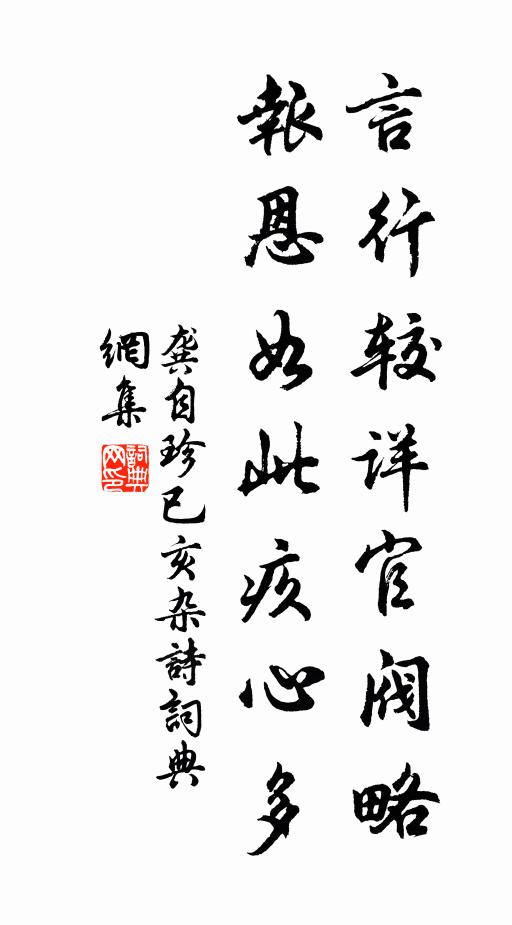 言行较详官阀略
報恩如此疚心多
龚自珍已亥杂詩詞典
網集
詞典
网印